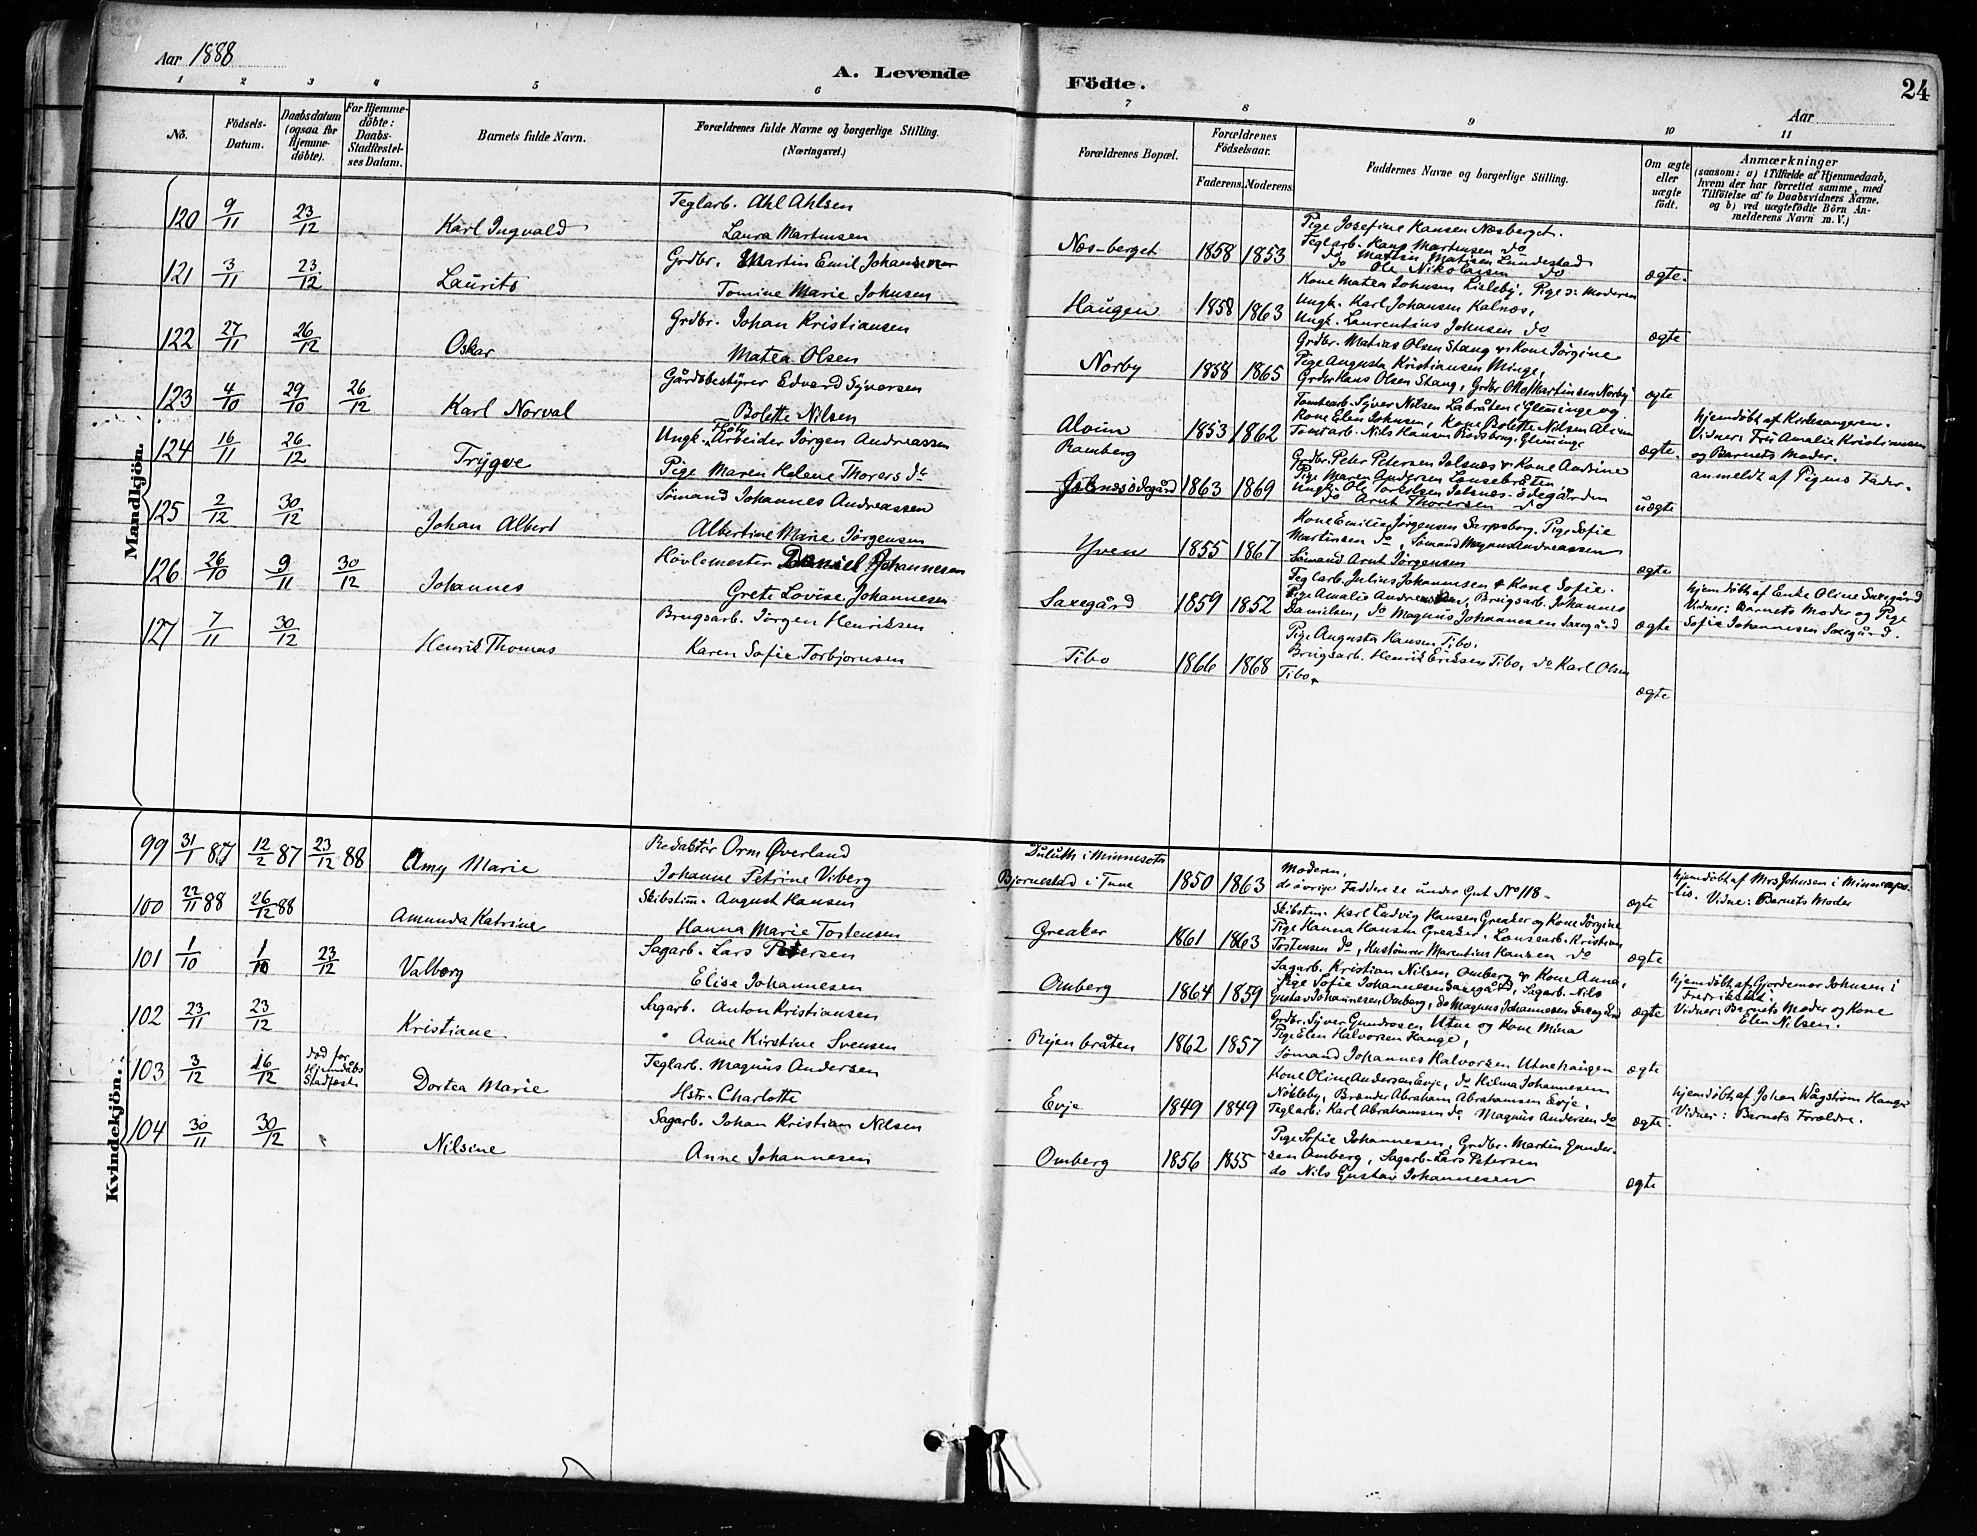 Aar 1888
A. Levende Födte.
24
Aar
1 2 3 4 5 6 7 8 9 10 11
No.
Födsels-Datum.
Daabsdatum (ogsaa for Hjemme-döbte).
For Hjemme-döbte: Daabs-Stadfæstel-ses Datum.
Barnets fulde Navn.
Forældrenes fulde Navne og borgerlige Stilling. (Næringsvei.)
Forældrenes Bopæl.
Forældrenes Födselsaar.
Faderens. Moderens.
Faddernes Navne og borgerlige Stilling.
Om ægte eller uægte födt.
Anmærkninger
(saasom: a) i Tilfælde af Hjemmedaab, hvem der har forrettet samme, med Tilföielse af to Daabsvidners Navne, og b) ved uægtefödte Börn An-melderens Navn m. V.)
Mandkjön.
120 9/11 23/12 Karl Ingvald
Teglarb. Ahl Ahlsen
Laura Martinsen
Næs-berget 1858 1853
Pige Josefine Hansen Næsberget.
Teglarb. Hans Martinsen do
do Mathis Matisen Lundestad
Ole Nikolaisen do
ægte.
121 3/11 23/12 Laurits
Grdbr. Martin Emil Johansen
Tomine Marie Johnsen
Haugen 1858 1863
Kone Matea Johnsen Lisleby, Pige Moderen
Ungk. Karl Johansen Kalnæs,
Ungk. Laurentius Johnsen do
ægte
122 27/11 26/12 Oskar
Grdbr. Johan Kristiansen
Matea Olsen
Norby 1858 1865
Grdbr. Matias Olsen Stang & Kone Jörgine
Pige Augusta Kristiansen Minge,
Grdbr Hans Olsen Stang, Grdbr Ole Martinsen Norby
ægte
123 4/10 29/10 26/12 Karl Norval
Gårdsbestyrer Edvard Syversen
Bolette Nilsen
Alvim 1853 1862
Tomtearb. Syver Nilsen Labråten i Glemminge og
Kone Elen Johnsen, Kone Bolette Nilsen Alvim
Tomtarb. Nils Hansen Glemminge
ægte.
hjemdöbt af Kirkesangeren.
Vidner: Frü Amalie Kristiansen
og Barnets Moder.
124 16/11 26/12 Trygve
Ungk. Fløtn. Arbeider Jörgen Andreassen
Pige Maren Helene Thorersdr
Ramberg
Jelsnæsödegård 1863 1869
Grdbr. Peter Petersen Jelsnæs & Kone Andrine
Pige Maren Andersen Lensebråten
Ungk. Ole Torersen Jelsnæs-ödegården
do Arnt Thorersen do
uægte
anmeldt af Pigens Fader.
125 2/12 30/12 Johan Albert
Sömand Johannes Andreassen
Albertine Marie Jörgensen
Yven 1855 1867
Kone Emilie Jörgensen Sarpsborg. Pige Sofie
Martinsen do, Sömand Magnus Andreassen
Sömand Arnt Jörgensen
ægte
126 26/10 9/11 30/12 Johannes
Hövlemester Daniel Johannesen
Grete Lovise Johannesen
Saxegård 1859 1852
Teglarb. Julius Johannesen & Kone Sofie.
Pige Amalie Andreassen, Brugsarb. Johannes
Danielsen, do Magnus Johannesen Saxegård
ægte
hjemdöbt af Enke Oline Saxegård
Vidner: Barnets Moder og Pige
Sofie Johannesen Saxegård.
127 7/11 30/12 Henrik Thomas
Brugsarb. Jörgen Henriksen
Karen Sofie Torbjörnsen
Tibo 1866 1868
Pige Augusta Hansen Tibo,
Brugsarb. Henrik Eriksen Tibo, do Karl Olsen
Tibo.
ægte
Kvindekjön.
99 31/1 87 12/2 87 23/12 88 Amy Marie
Redaktör Orm Øverland
Johanne Petrine Viberg
Duluth i Minnesota
Bjornestad i Tune 1850 1863
Moderen,
de övrige Faddre se under Gut No 118.
ægte
hjemdöbt af Mrs Johnsen i Minneapo-
lis. Vidne: Barnets Moder
100 22/11 88 26/12 88 Amunda Katrine
Skibstm. August Hansen
Hanna Marie Tostensen
Greaker 1861 1863
Skibstm. Karl Ludvig Hansen Greaker og Kone Jörgine
Pige Hanna Hansen Greaker. Lensearb. Kristian
Tostensen do, Hustömrer Marentius Hansen do
ægte
101 1/10 1/10 23/12 Valborg
Sagarb. Lars Petersen
Elise Johannesen
Omberg 1864 1859
Sagarb. Kristian Nilsen Omberg & Kone Anna,
Pige Sofie Johannesen Saxegård, Sagarb. Nils
Gustav Johannesen Omberg, do Magnus Johannesen Saxegård
ægte
hjemdöbt af Gjordemor Johnsen i
Fredrikstad.
Vidner: Barnets Moder og Kone
Elen Nilsen.
102 23/11 23/12 Kristiane
Sagarb. Anton Kristiansen
Anne Kirstine Svensen
Ryenbråten 1862 1857
Grdbr. Syver Gundrosen Utne og Kone Mina
Pige Elen Halvorsen Hauge,
Sömand Johannes Halvorsen Utnehaugen
ægte
103 3/12 16/12 död for Hjemdåbs Stadfæst. Dortea Marie
Teglarb. Magnus Andersen
Hstr. Charlotte
Evje 1849 1849
Kone Oline Andersen Evje, do Hilma Johannesen
Nokleby, Brænder Abraham Abrahamsen Evje,
Teglarb. Karl Abrahamsen do Magnus Andersen do
ægte.
hjemdöbt af Johan Wågström Hauge
Vidner: Barnets Foreldre.
104 30/11 30/12 Nilsine
Sagarb. Johan Kristian Nilsen
Anne Johannesen
Omberg 1856 1855
Pige Sofie Johannesen, Grdbr. Martin Gunder-
sen Omberg, Sagarb. Lars Petersen
do Nils Gustav Johannesen
ægte